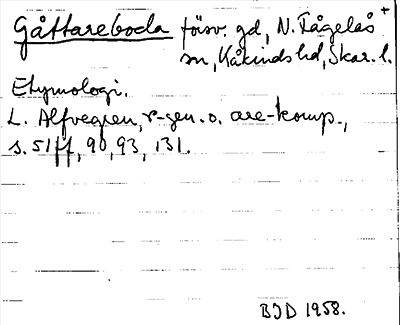 Gåttareboda försv. gd, N. Fågelås +
sn, Kåkinds hd, Skar. l.
Etymologi.
L. Alfvegren, r-gen. o. are-komp.,
s. 51 ff, 90, 93, 131.
BJD 1958.